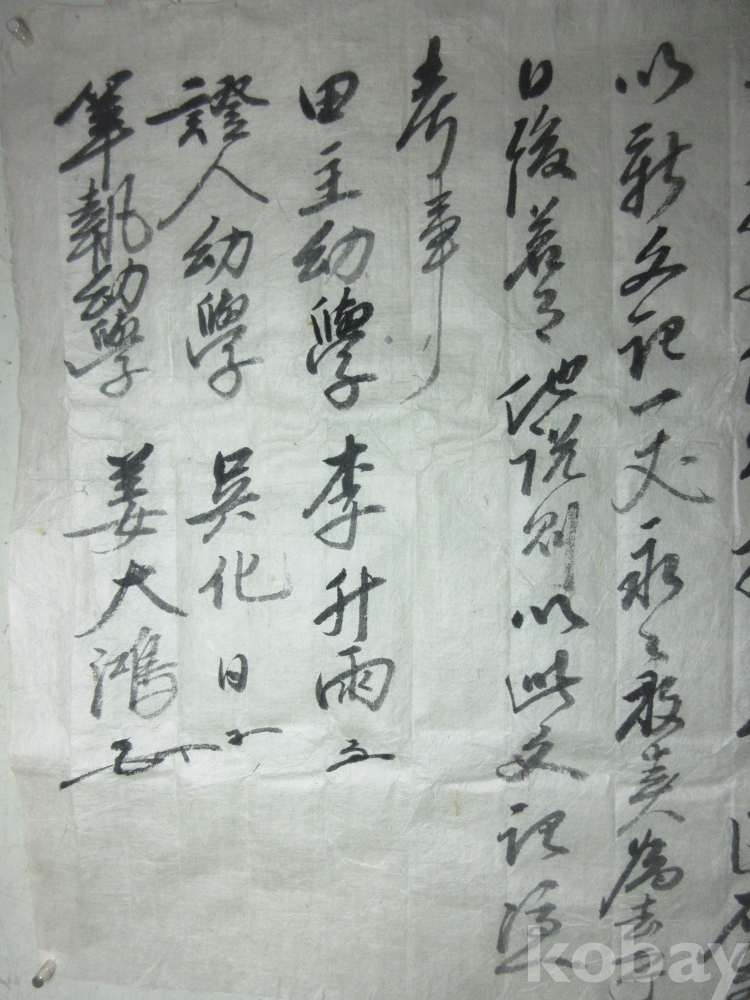 以新文記一丈永〻放賣爲去乎
日後若有他說則以此文記憑
考事
田主幼學 李升雨
證人幼學 吳化日
筆執幼學 姜大鴻
kobay